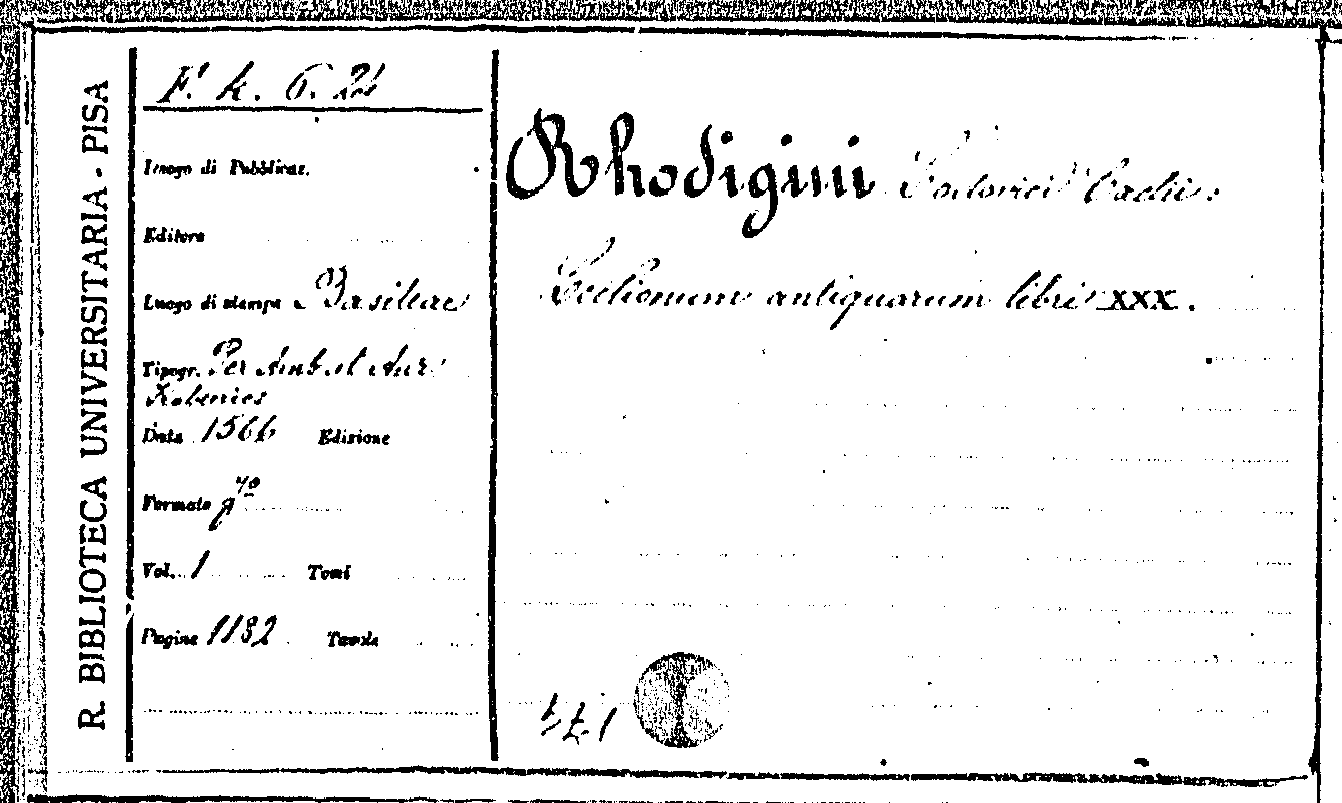 R. BIBLIOTECA UNIVERSITARIA - PISA
F. k. 6. 21
Luogo di Pubblicaz.
Editore
Luogo di stampa Basileae
Tipogr. Per Amb. et Aur.
Frobenios
Data 1566 Edizione
Formato 4to
Vol. 1 Tomi
Pagine 1182 Tavole
Rhodigini Lodovici Caelii:
Lectionum antiquarum libri XXX.